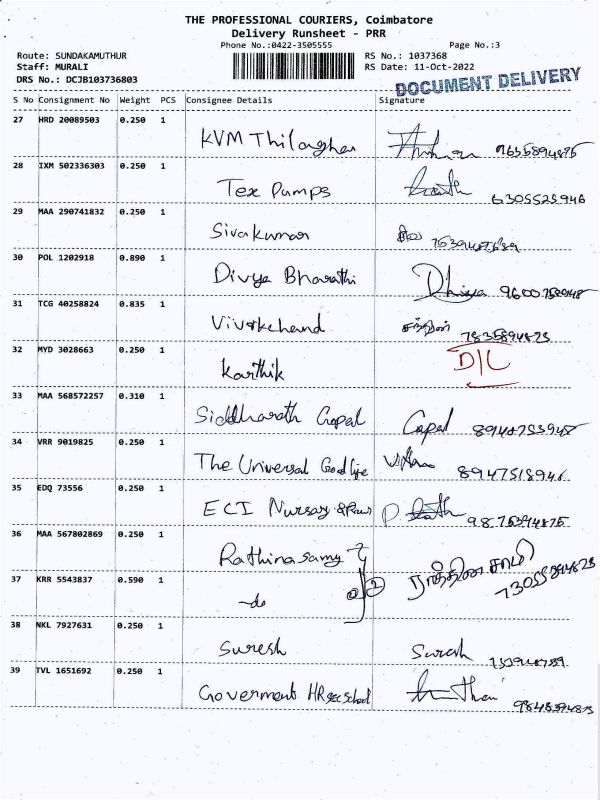 THE PROFESSIONAL COURIERS, Coimbatore
Delivery Runsheet - PRR
Phone No.:0422-3505555 Page No.:3
Route: SUNDAKAMUTHUR RS No.: 1037368
Staff: MURALI RS Date: 11-Oct-2022
DRS No.: DCJB103736803
DOCUMENT DELIVERY
S No Consignment No Weight PCS Consignee Details Signature
27 HRD 20089503 0.250 1
KVM Thilaghan
28 IXM 502336303 0.250 1
Tex Pumps 6305525946
29 MAA 290741832 0.250 1
Sivakumar
30 POL 1202918 0.890 1
Divya Bharathi Dhivya
31 TCG 40258824 0.835 1
Vivekchand
32 MYD 3028663 0.250 1
Karthik D/L
33 MAA 568572257 0.310 1
Siddharath Gopal Gopal
34 VRR 9019825 0.250 1
The Universal Good life 8947518946
35 EDQ 73556 0.250 1
ECI Nursary
36 MAA 567802869 0.250 1
Rathinasamy
37 KRR 5543837 0.590 1
-do
38 NKL 7927631 0.250 1
Suresh Suresh
39 TVL 1651692 0.250 1
Goverment HR sec School